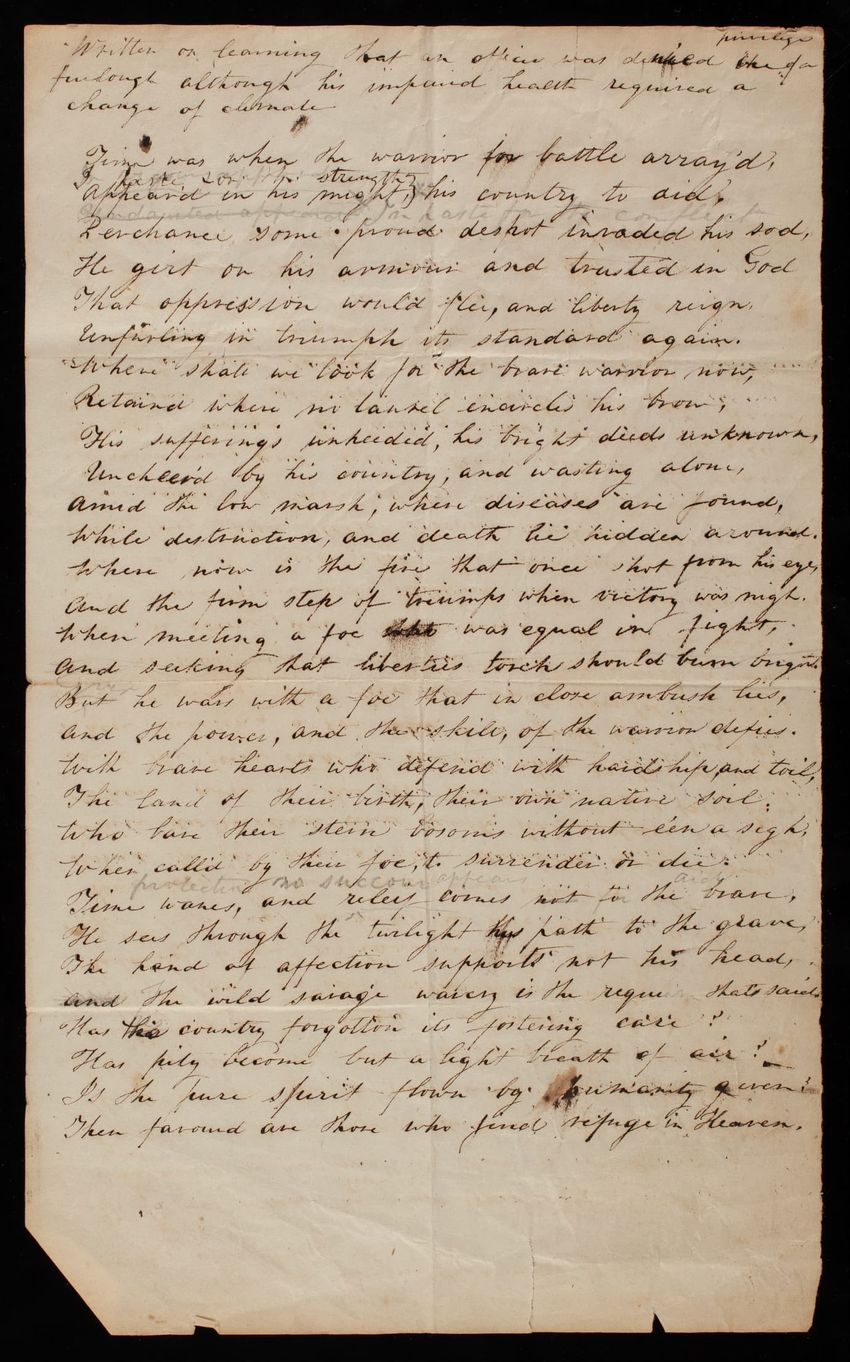 privilege
Written on learning that an officer was denied the of a
furlough although his impaired health required a
change of climate
Time was when the warrior for battle array'd,
haste or strength
Appear'd in his might, his country to aid,
Undaunted appeared In haste for the conflict
Perchance some proud despot invaded his sod,
He girt on his armour and trusted in God
That oppression would flee, and liberty reign,
Unfurling in triumph its standard again.
Where shall we look for the brave warrior now,
Retaind where no laurel encircles his brow,
His sufferings unheeded, his bright deeds unknown,
Uncheer'd by his country, and wasting alone,
Amid the low marsh, where diseases are found,
While destruction, and death lie hidden around.
Where now is the fire that once shot from his eye,
And the firm step of triumps when victory was nigh.
When meeting a foe who was equal in fight,
And seeking that liberties torch should burn bright
But he wars with a foe that in close ambush lies,
And the power, and the skill, of the warrior defies.
With brave hearts who defend with hardship, and toil,
The land of their birth, their own native soil,
Who bare their stern bosoms without e'en a sigh,
When call'd by their foe, to surrender or die.
protection no succour appear
Time wanes, and relief comes not to the brave,
He sees through the twilight his path to the grave,
The hand of affection supports not his head,
And the wild savage warcry is the requiem that's said
Has his country forgotton its fostering care?
Has pity become but a light breath of air?
Is the pure spirit flown by humanity given?
Then favourd are those who find refuge in Heaven.